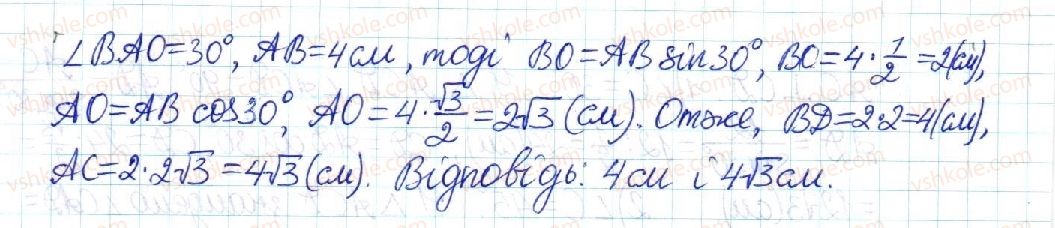 ∠BAO=30°, AB=4см, тоді BO=AB sin30°, BO=4·1/2=2(см),
AO=AB cos30°, AO=4·√3/2=2√3(см). Отже, BD=2·2=4(см),
AC=2·2√3=4√3(см). Відповідь: 4см і 4√3см.